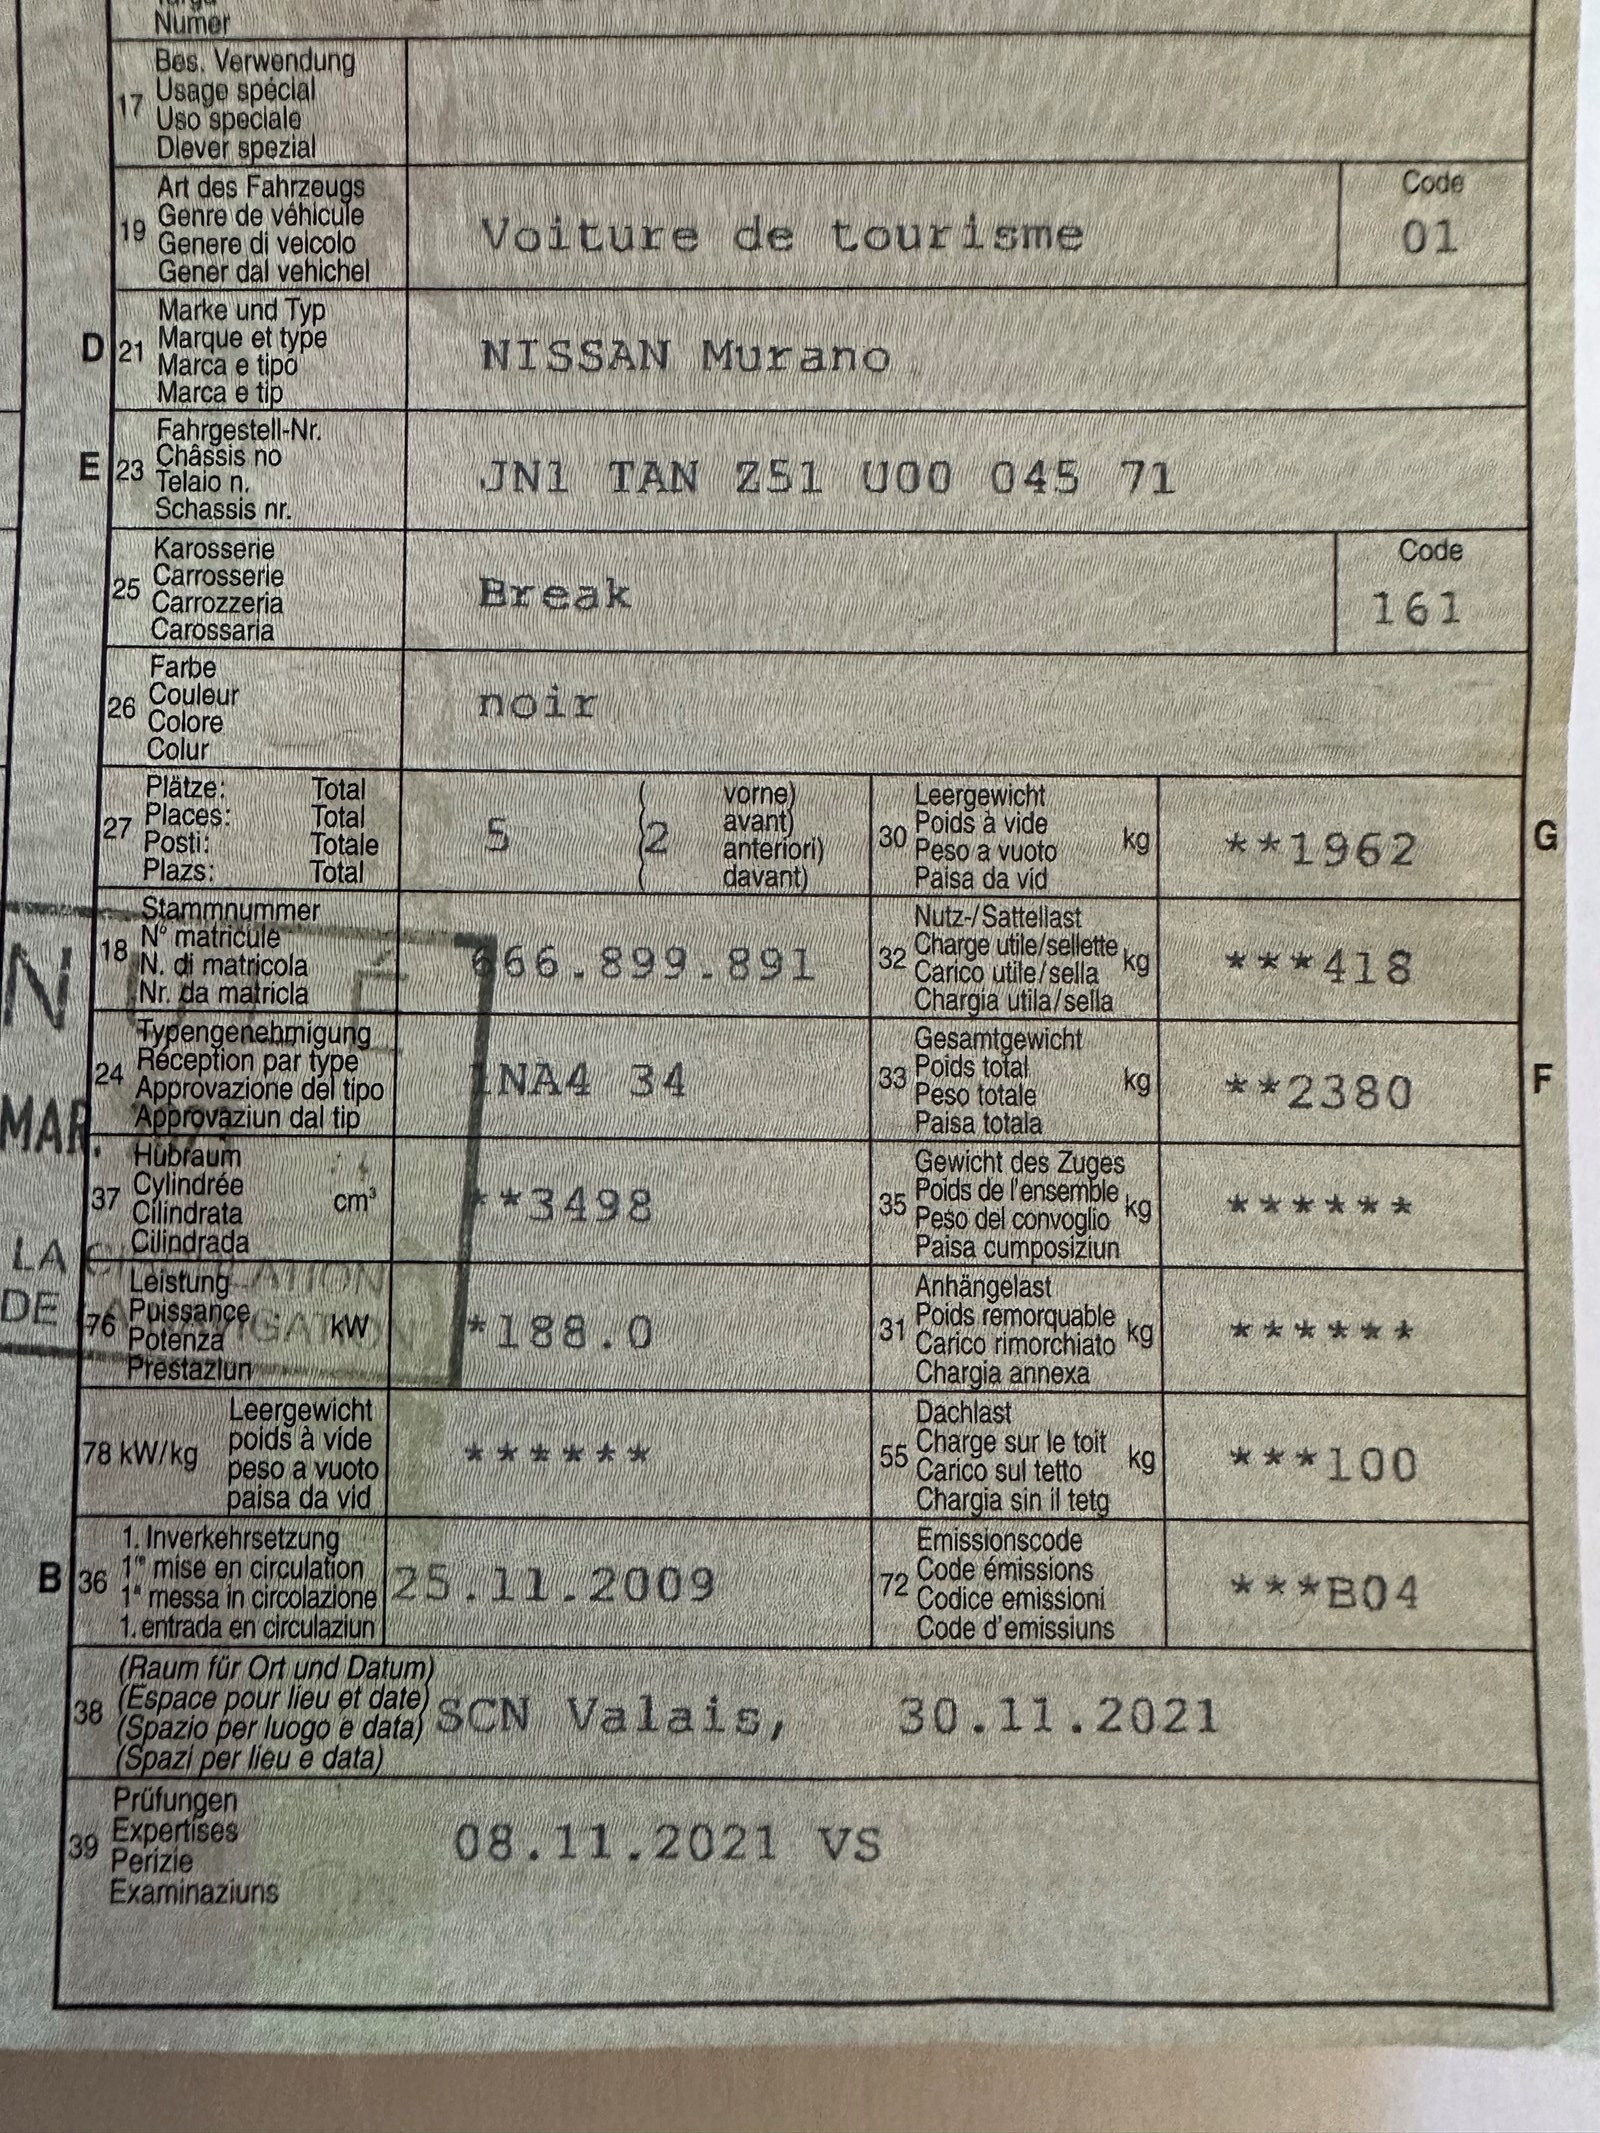 Numer
17
Bes. Verwendung
Usage spécial
Uso speciale
Diever spezial
19
Art des Fahrzeugs
Genre de véhicule
Genere di veicolo
Gener dal vehichel
Voiture de tourisme
Code
01
D
21
Marke und Typ
Marque et type
Marca e tipo
Marca e tip
NISSAN Murano
E
23
Fahrgestell-Nr.
Châssis no
Telaio n.
Schassis nr.
JN1 TAN Z51 U00 045 71
25
Karosserie
Carrosserie
Carrozzeria
Carossaria
Break
Code
161
26
Farbe
Couleur
Colore
Colur
noir
27
Plätze: Total
Places: Total
Posti: Totale
Plazs: Total
5
(2
vorne)
avant)
anteriori)
davant)
30
Leergewicht
Poids à vide
Peso a vuoto
Paisa da vid
kg
**1962
G
18
Stammnummer
N° matricule
N. di matricola
Nr. da matricla
666.899.891
32
Nutz-/Sattellast
Charge utile/sellette
Carico utile/sella
Chargia utila/sella
kg
***418
24
Typengenehmigung
Réception par type
Approvazione del tipo
Approvaziun dal tip
1NA4 34
33
Gesamtgewicht
Poids total
Peso totale
Paisa totala
kg
**2380
F
MAR.
37
Hubraum
Cylindrée
Cilindrata
Cilindrada
cm³
**3498
35
Gewicht des Zuges
Poids de l'ensemble
Peso del convoglio
Paisa cumposiziun
kg
******
LA CIRCULATION
DE LA NAVIGATION
76
Leistung
Puissance
Potenza
Prestaziun
kW
*188.0
31
Anhängelast
Poids remorquable
Carico rimorchiato
Chargia annexa
kg
******
78 kW/kg
Leergewicht
poids à vide
peso a vuoto
paisa da vid
******
55
Dachlast
Charge sur le toit
Carico sul tetto
Chargia sin il tetg
kg
***100
B
36
1. Inverkehrsetzung
1re mise en circulation
1a messa in circolazione
1. entrada en circulaziun
25.11.2009
72
Emissionscode
Code émissions
Codice emissioni
Code d'emissiuns
***B04
38
(Raum für Ort und Datum)
(Espace pour lieu et date)
(Spazio per luogo e data)
(Spazi per lieu e data)
SCN Valais, 30.11.2021
39
Prüfungen
Expertises
Perizie
Examinaziuns
08.11.2021 VS